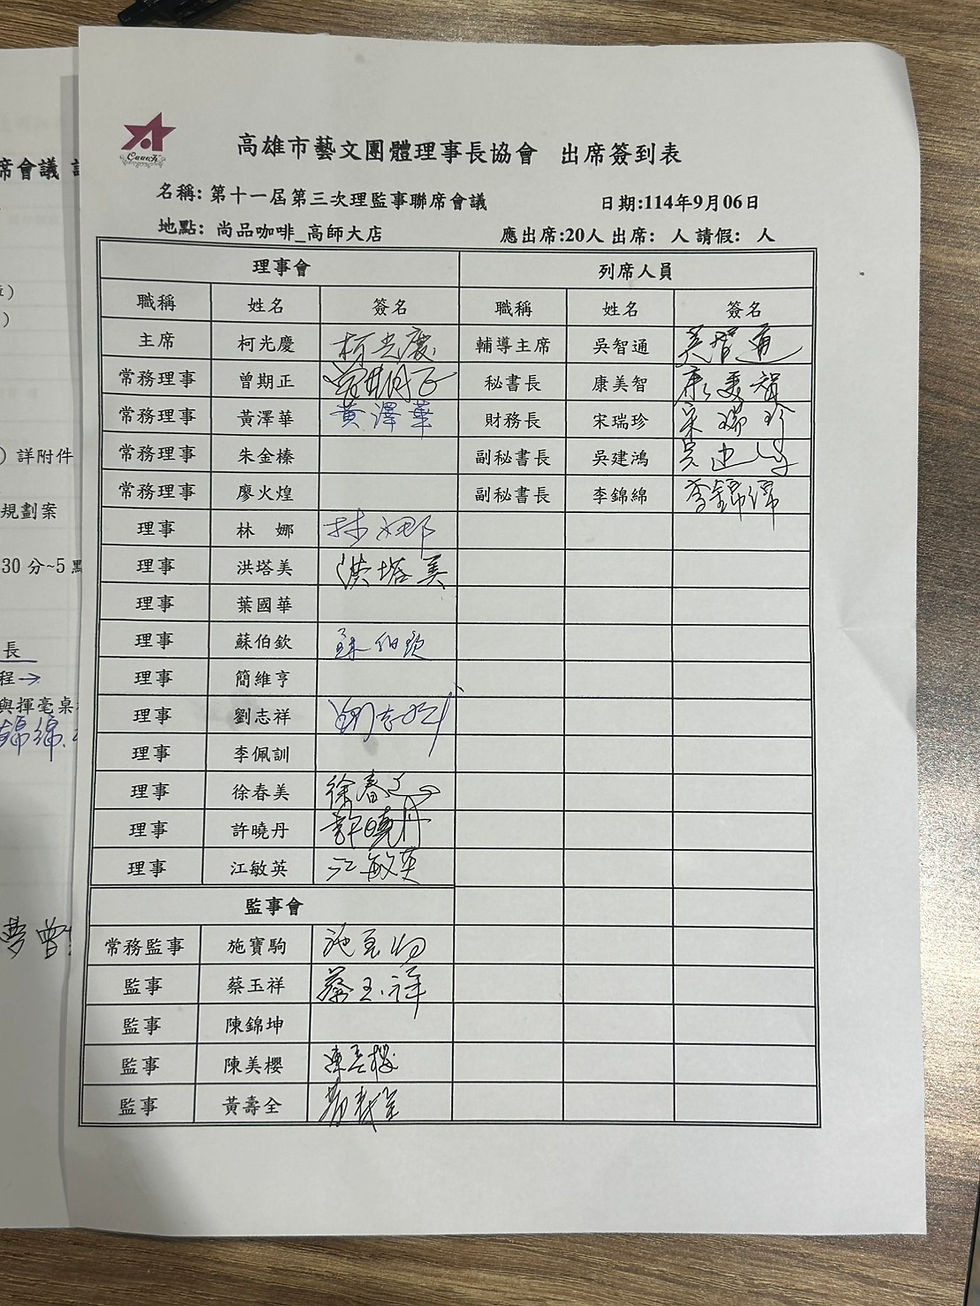 席會議
高雄市藝文團體理事長協會 出席簽到表
名稱: 第十一屆第三次理監事聯席會議 日期:114年9月06日
地點: 尚品咖啡_高師大店 應出席:20人 出席: 人 請假: 人
理事會 列席人員
職稱 姓名 簽名 職稱 姓名 簽名
主席 柯光慶 柯光慶 輔導主席 吳智通 吳智通
常務理事 曾期正 曾期正 秘書長 康美智 康美智
常務理事 黃澤華 黃澤華 財務長 宋瑞珍 宋瑞珍
常務理事 朱金榛 副秘書長 吳建鴻
常務理事 廖火煌 副秘書長 李錦綿 李錦綿
理事 林 娜 林娜
理事 洪塔美 洪塔美
理事 葉國華
理事 蘇伯欽 蘇伯欽
理事 簡維亨
理事 劉志祥 劉志祥
理事 李佩訓
理事 徐春美 徐春美
理事 許曉丹 許曉丹
理事 江敏英 江敏英
監事會
常務監事 施寶駒
監事 蔡玉祥 蔡玉祥
監事 陳錦坤
監事 陳美櫻 陳美櫻
監事 黃壽全 黃壽全
) 詳附件
規劃案
30 分~5 點
長
程→
與揮毫桌
錦綿
夢 曾